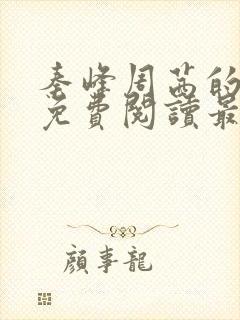 秦峰周茜的
免費閱讀最
顏事龍